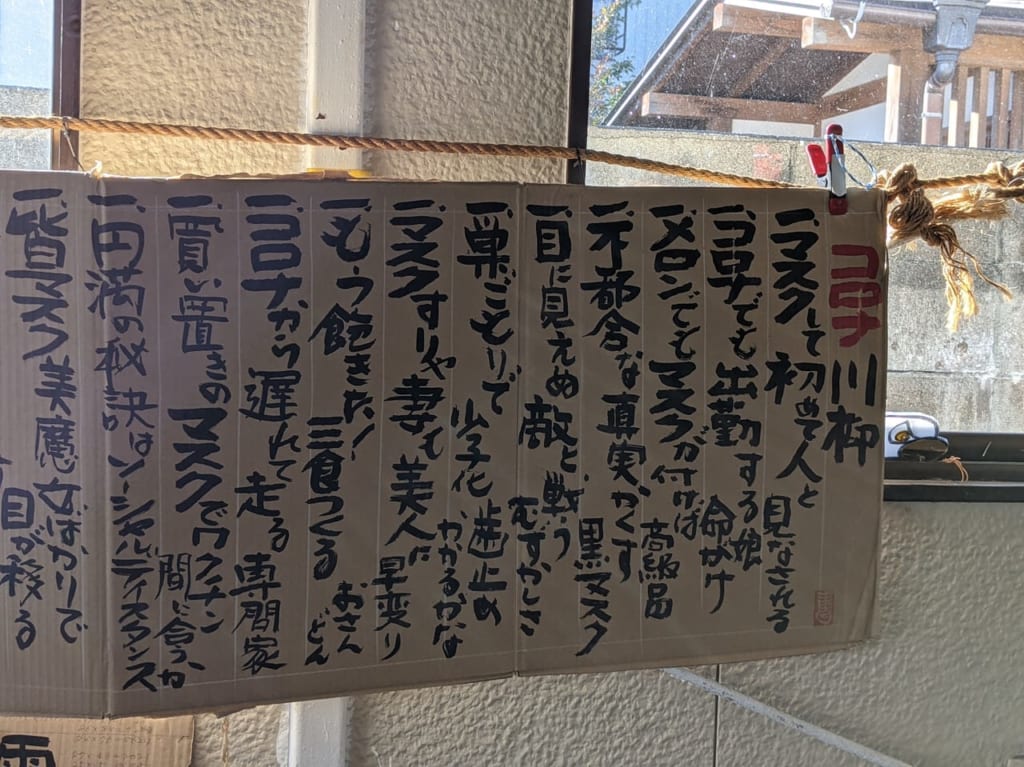 コロナ川柳
一、マスクして初めて人と見なされる
一、コロナでも出勤する娘命がけ
一、メロンでもマスクが付けば高級品
一、不都合な真実かくす黒マスク
一、目に見えぬ敵と戦うむずかしさ
一、巣ごもりで少子化歯止めかかるかな
一、マスクすりゃ妻も美人に早変り
一、もう飽きた！三食つくるおさんどん
一、コロナから遅れて走る専門家
一、買い置きのマスクでワクチン間に合うか
一、円満の秘訣はソーシャルディスタンス
一、皆マスク美魔女ばかりで目が移る
雨